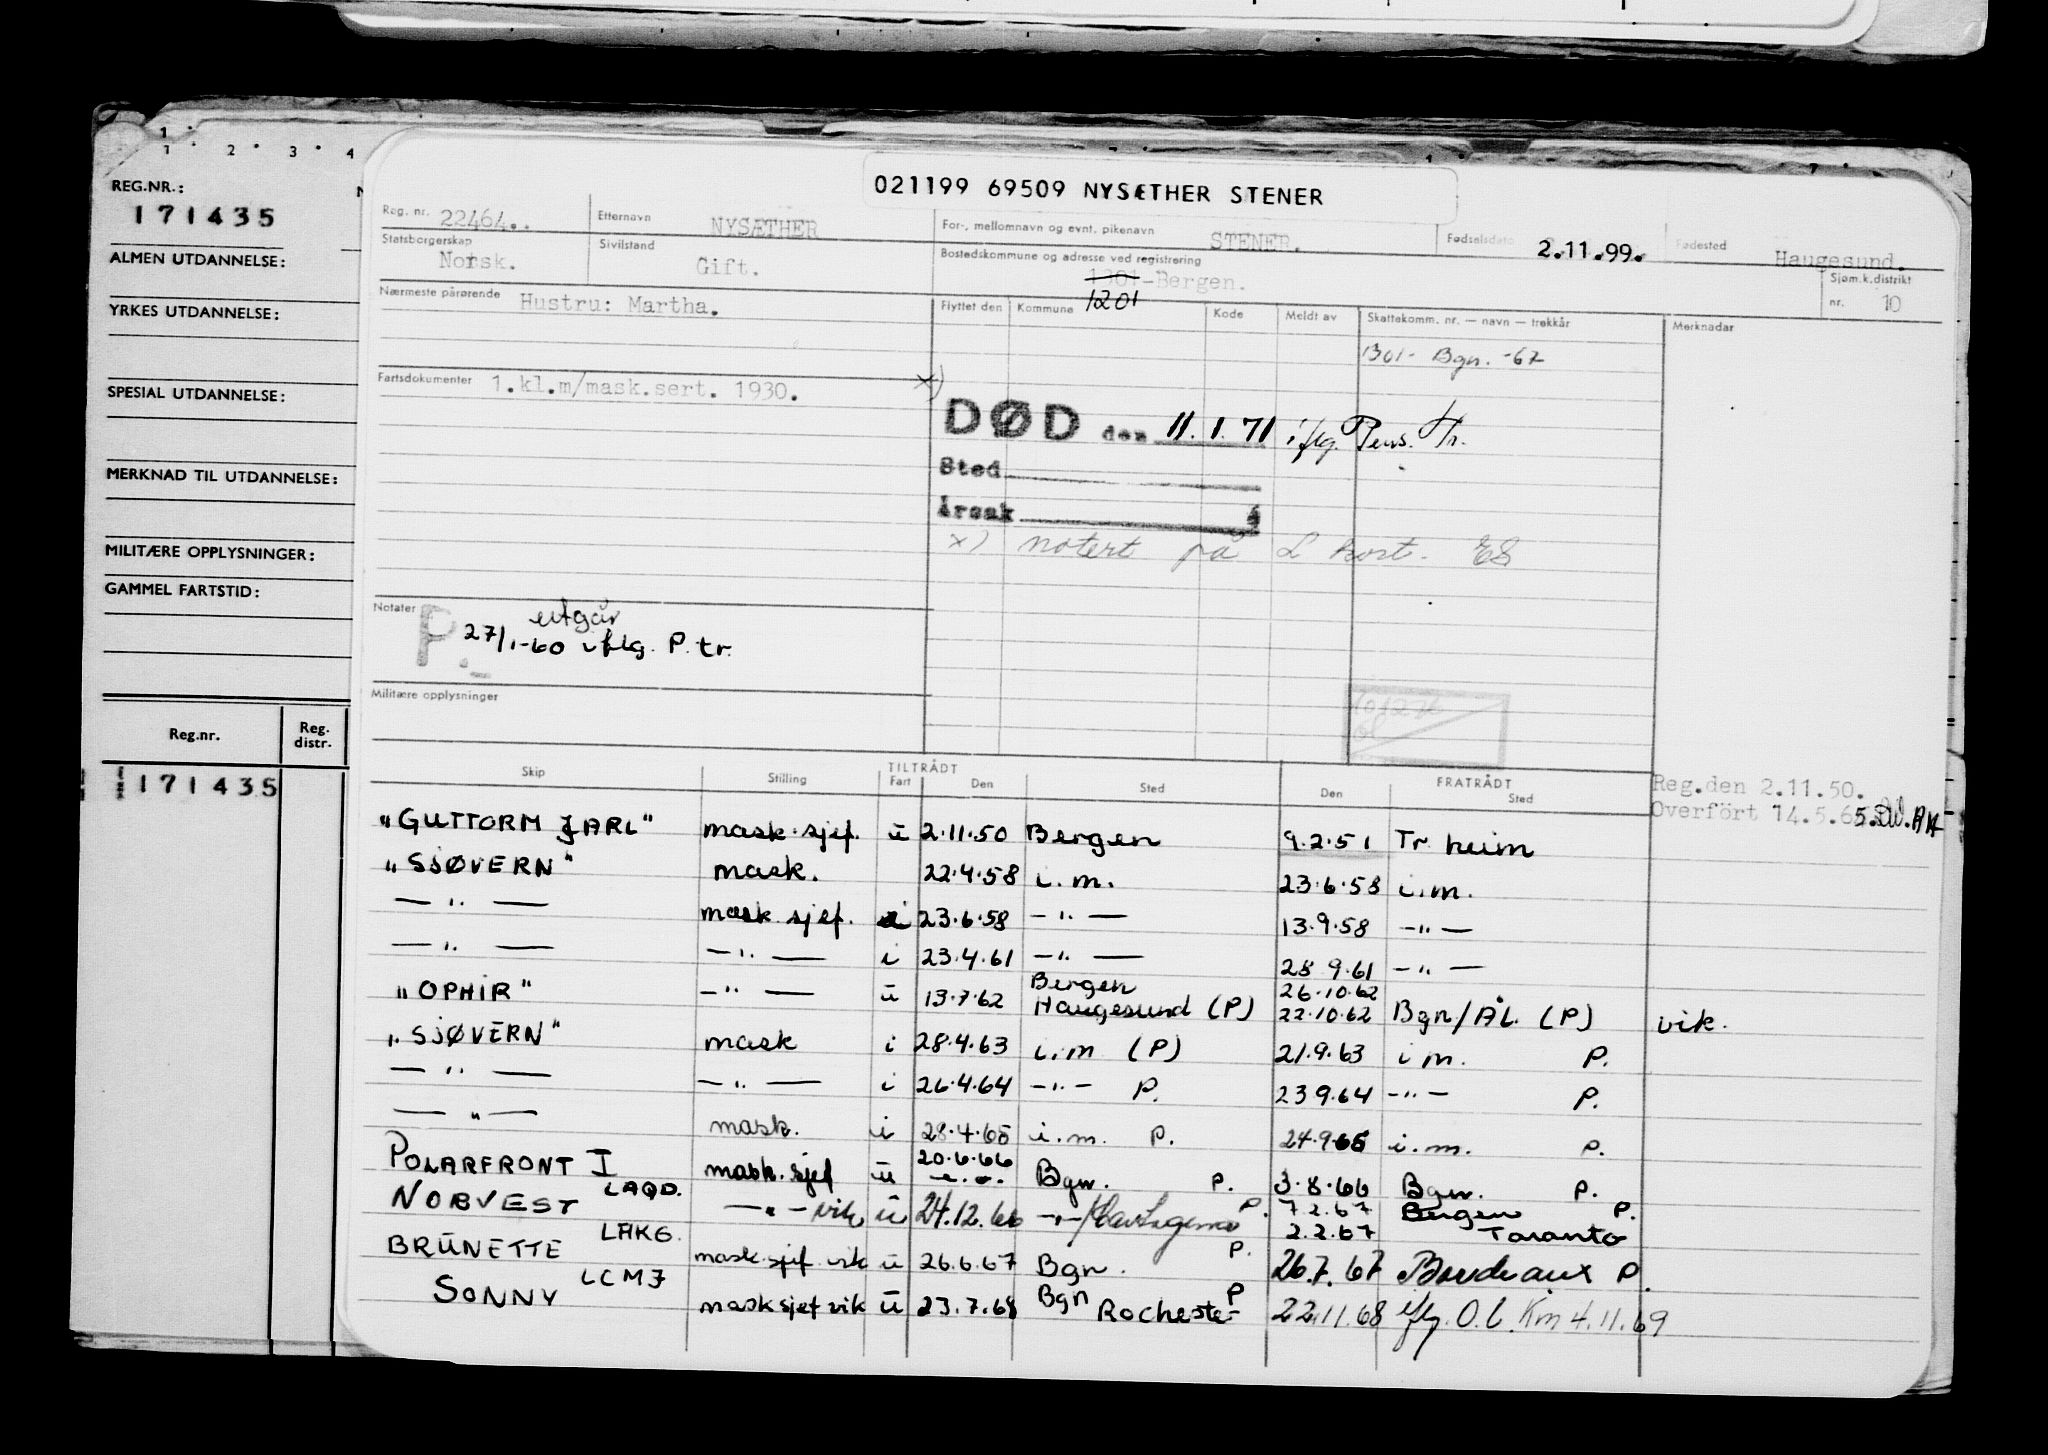 1 2 3 4
REG.NR.:
171435
ALMEN UTDANNELSE:
YRKES UTDANNELSE:
SPESIAL UTDANNELSE:
MERKNAD TIL UTDANNELSE:
MILITÆRE OPPLYSNINGER:
GAMMEL FARTSTID:
Reg.nr. Reg. distr.
171435
021199 69509 NYSÆTHER STENER
Reg. nr. 22464.. Etternavn NYSÆTHER For-, mellomnavn og evnt. pikenavn STENER. Fødselsdato 2.11.99. Fødested Haugesund.
Statsborgerskap Norsk. Sivilstand Gift. Bostedskommune og adresse ved registrering 1301-Bergen. Sjøm.k.distrikt nr. 10
1201
Nærmeste pårørende Hustru: Martha. Flyttet den Kommune Kode Meldt av Skattekomm. nr. — navn — trekkår Merknadar
1301- Bgn. -67
Fartsdokumenter 1.kl.m/mask.sert. 1930. x)
DØD den 11.1.71 iflg. Pens. Tr.
Sted
Årsak
x) notert på L kort. ES
Notater P. utgår
27/1-60 iflg. P. tr.
Militære opplysninger
Skip Stilling TILTRÅDT Fart Den Sted FRATRÅDT Den Sted
Reg.den 2.11.50.
Overfört 14.5.65.
"GUTTORM JARL" mask.sjef. u 2.11.50 Bergen 9.2.51 Tr.heim
"SJØVERN" mask. 22.4.58 i.m. 23.6.58 i.m.
— " — mask.sjef. i 23.6.58 — " — 13.9.58 — " —
— " — — " — i 23.4.61 — " — 28.9.61 — " —
"OPHIR" — " — u 13.7.62 Bergen Haugesund (P) 26.10.62 22.10.62 Bgn/ÅL. (P) vik.
"SJØVERN" mask i 28.4.63 i.m (P) 21.9.63 i m. P.
— " — — " — i 26.4.64 — " — P. 23.9.64 — " — P.
— " — mask. i 28.4.65 i.m. P. 24.9.65 i.m. P.
POLARFRONT I LAQD. mask.sjef u 20.6.66 Bgn. P. 3.8.66 Bgn. P.
NORVEST LAKG. — " — vik u 24.12.66 — " — P. 7.2.67 Bergen P.
2.2.67 Taranto
BRUNETTE LCMJ mask.sjef vik u 26.6.67 Bgn. P. 26.7.67 Bordeaux P.
SONNY mask sjef vik u 23.7.68 Bgn Rochester P 22.11.68 iflg. O.l. Km 4.11.69